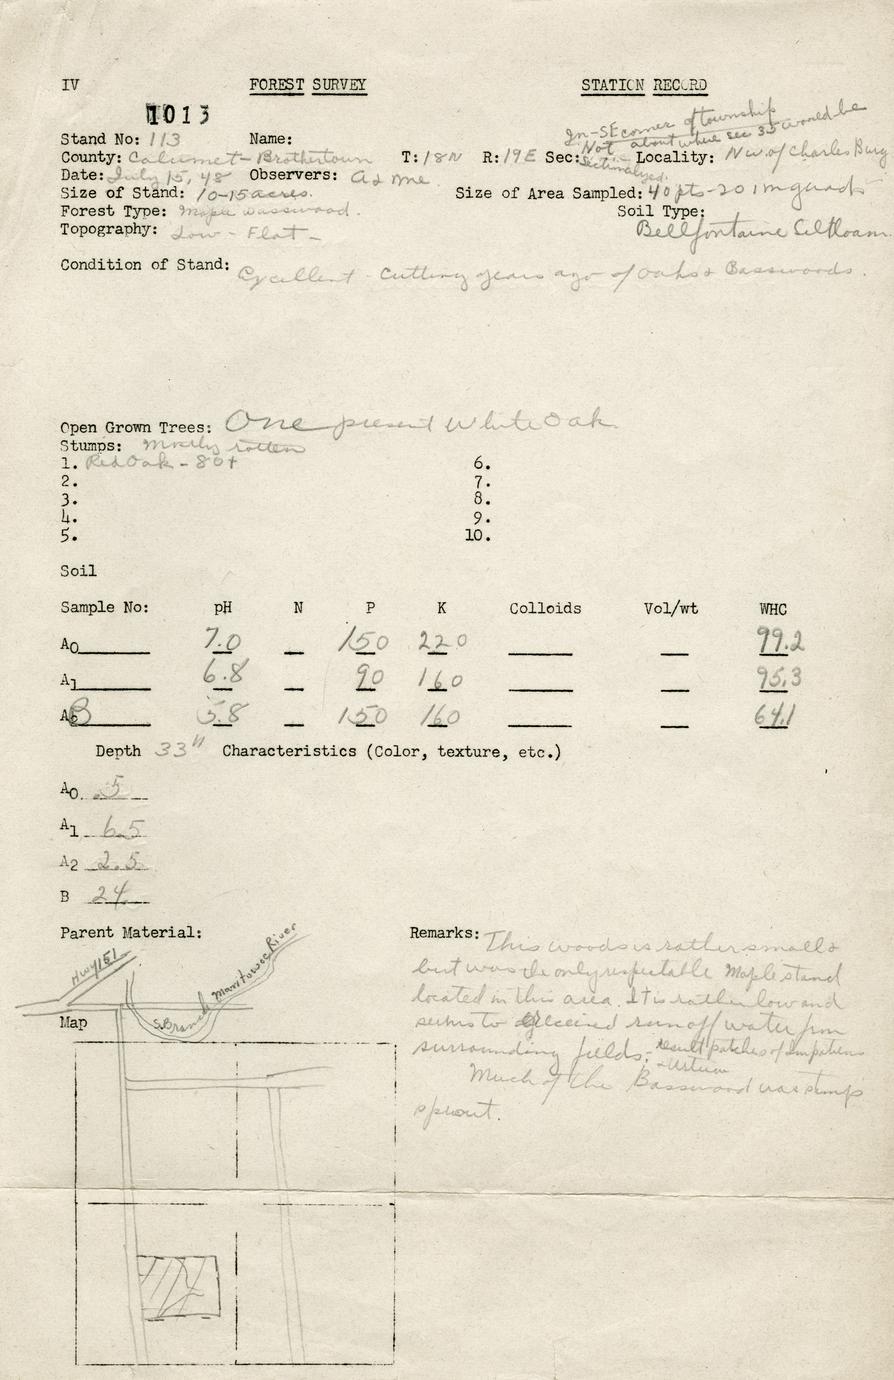 IV FOREST SURVEY STATION RECORD
1013
In-SE corner of township
Not about where sec 35 would be
sectionalized.
Stand No: 113 Name:
County: Calumet - Brothertown T: 18N R: 19E Sec: Locality: NW of Charles Burg
Date: July 15, 48 Observers: a & me
Size of Stand: 10-15 acres. Size of Area Sampled: 40 pts - 20 1m quads
Forest Type: Maple Basswood. Soil Type:
Topography: Low - Flat - Bellfontaine Silt loam.
Condition of Stand: Excellent - Cutting years ago of Oaks & Basswoods.
Open Grown Trees: One present White Oak
Stumps: Mostly rotten
1. Red Oak - 80+ 6.
2. 7.
3. 8.
4. 9.
5. 10.
Soil
Sample No: pH N P K Colloids Vol/wt WHC
A0 7.0 150 220 99.2
A1 6.8 90 160 95.3
B 5.8 150 160 64.1
Depth 33" Characteristics (Color, texture, etc.)
A0 .5
A1 6.5
A2 2.5
B 24
Parent Material: Remarks: This woods is rather small &
but was the only respectable Maple stand
located in this area. It is rather low and
seems to received run off water from
surrounding fields; - result patches of Impatiens
& Urtica
Much of the Basswood was stump
sprout.
Hwy 151
S. Branch Manitowoc River
Map